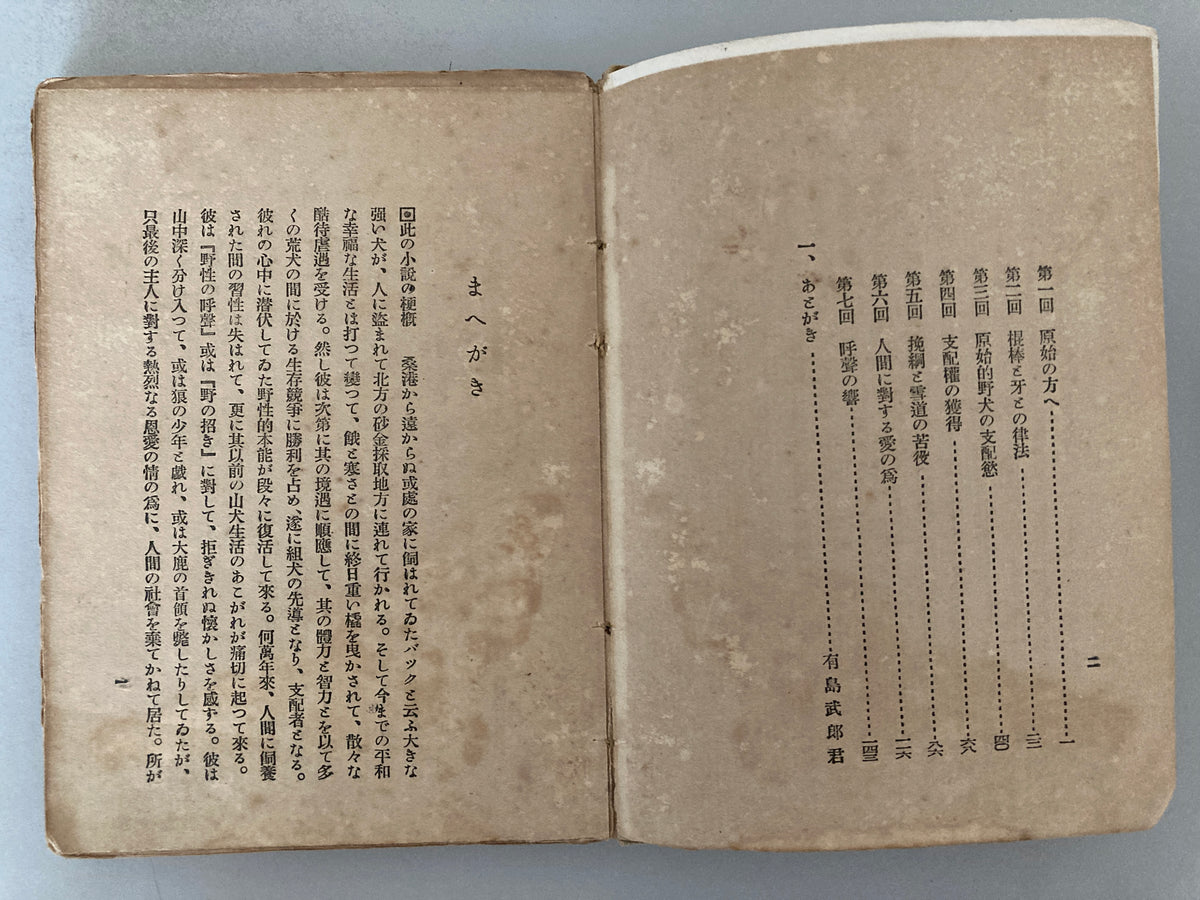 二
第一回　原始の方へ………一
第二回　棍棒と牙との律法………二三
第三回　原始的野犬の支配慾………四〇
第四回　支配權の獲得………六八
第五回　挽綱と雪道の苦役………八六
第六回　人間に對する愛の爲………一一六
第七回　呼聲の響………一四三
一、あとがき………有島武郎君
まへがき
回此の小説の梗概　桑港から遠からぬ或處の家に飼はれてゐたバックと云ふ大きな
强い犬が、人に盗まれて北方の砂金採取地方に連れて行かれる。そして今までの平和
な幸福な生活とは打つて變つて、餓と寒さとの間に終日重い橇を曳かされて、散々な
酷待虐遇を受ける。然し彼は次第に其の境遇に順應して、其の體力と智力とを以て多
くの荒犬の間に於ける生存競爭に勝利を占め、遂に組犬の先導となり、支配者となる。
彼れの心中に潜伏してゐた野性的本能が段々に復活して來る。何萬年來、人間に飼養
された間の習性は失はれて、更に其以前の山犬生活のあこがれが痛切に起つて來る。
彼は『野性の呼聲』或は『野の招き』に對して、拒ぎきれぬ懷かしさを感する。彼は
山中深く分け入つて、或は狼の少年と戯れ、或は大鹿の首領を斃したりしてゐたが、
只最後の主人に對する熱烈なる恩愛の情の爲に、人間の社會を棄てかねて居た。所が
一